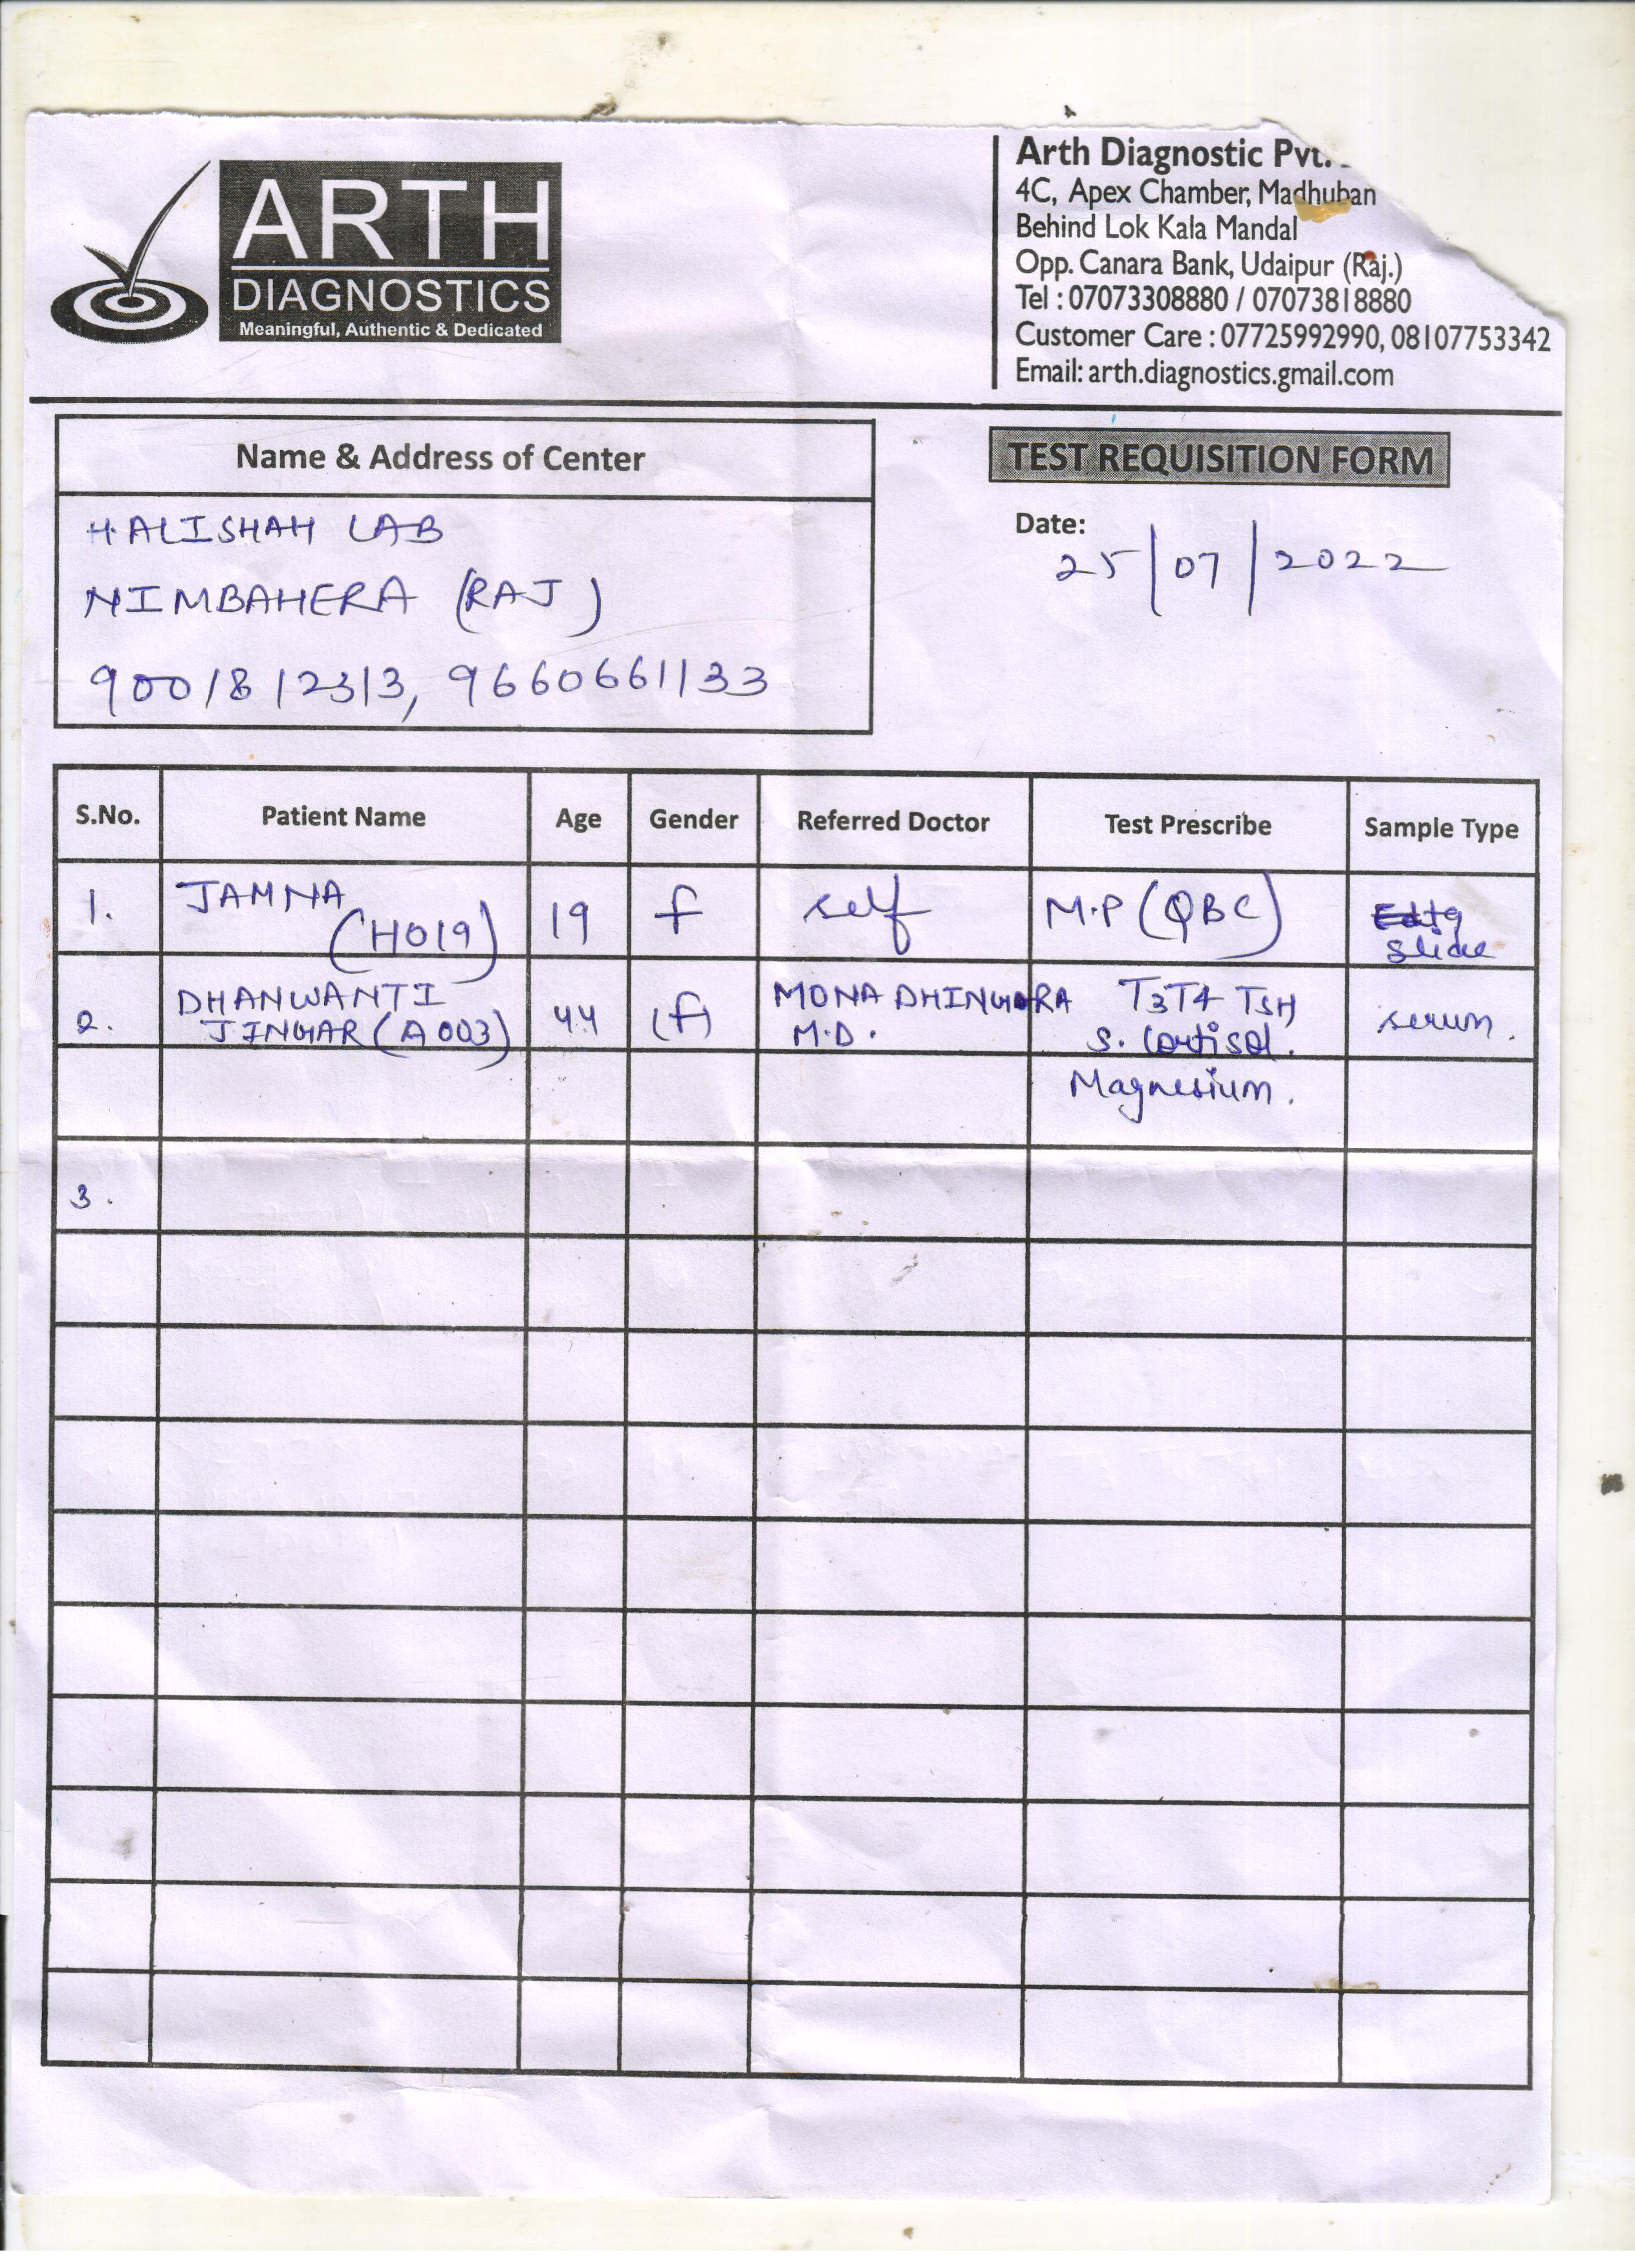 ARTH
DIAGNOSTICS
Meaningful, Authentic & Dedicated
Arth Diagnostic Pvt.
4C, Apex Chamber, Madhuban
Behind Lok Kala Mandal
Opp. Canara Bank, Udaipur (Raj.)
Tel : 07073308880 / 07073818880
Customer Care : 07725992990, 08107753342
Email: arth.diagnostics.gmail.com
Name & Address of Center
HALISHAH LAB
NIMBAHERA (RAJ)
9001812313, 9660661133
TEST REQUISITION FORM
Date:
25/07/2022
S.No. Patient Name Age Gender Referred Doctor Test Prescribe Sample Type
1. JAMNA (H019) 19 f self M.P (QBC) slide
2. DHANWANTI JINGAR (A003) 44 (f) MONA DHINGRA M.D. T3T4 TSH serum.
S. Cortisol.
Magnesium.
3.